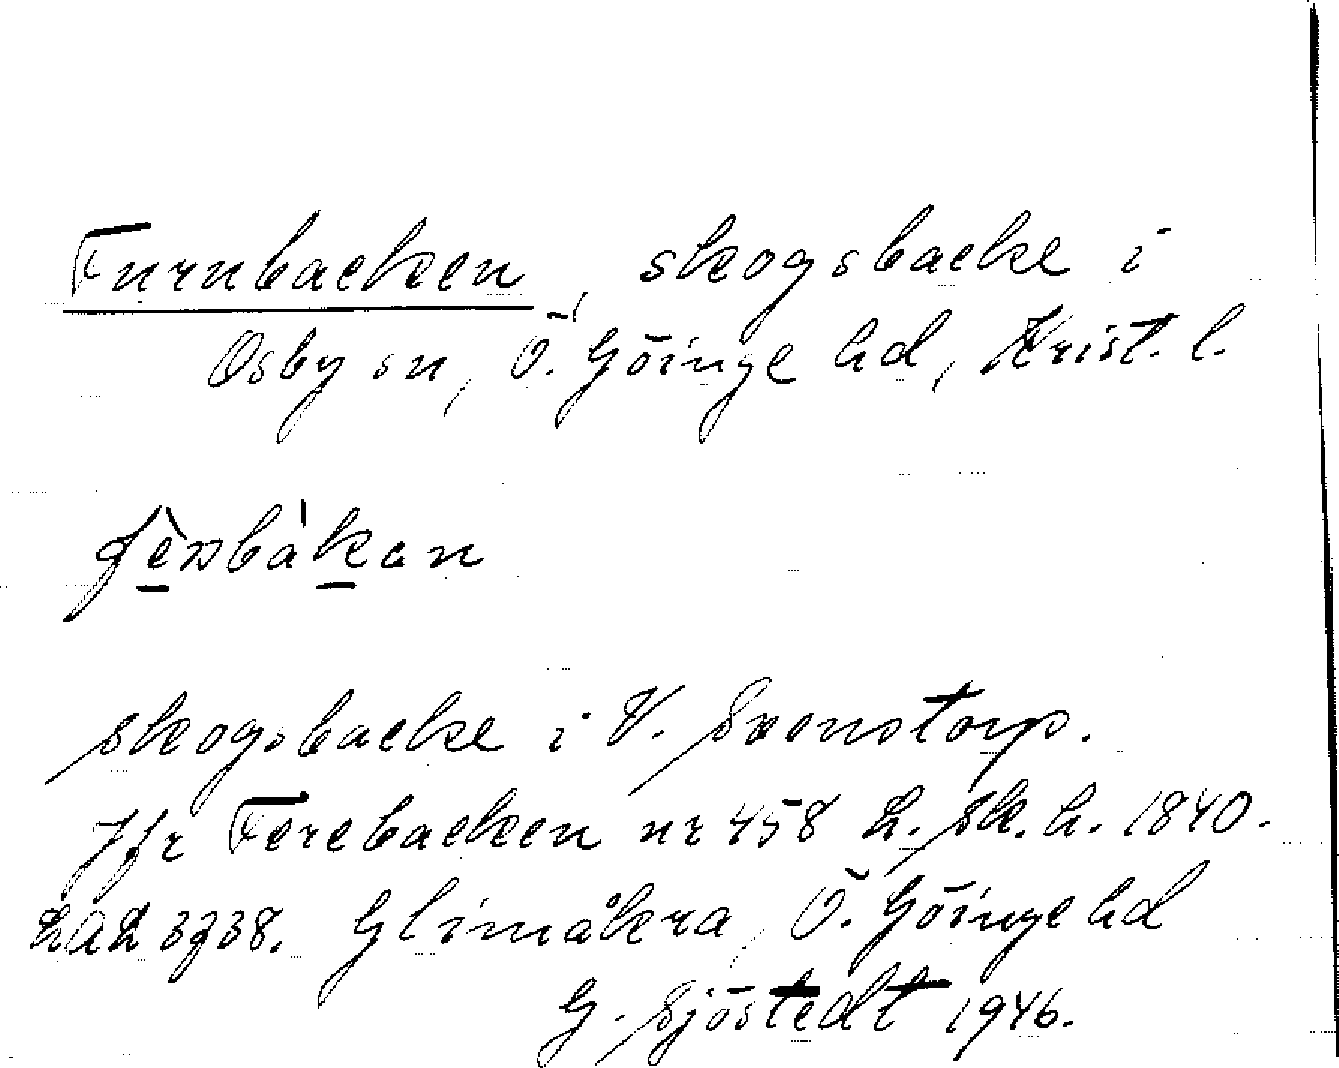 Furnbacken, skogsbacke i
Osby sn, Ö. Göinge hd, Krist. l.
skogsbacke i V. Svenstorp.
Jfr Ferebacken nr 458 L. sk. h. 1840.
LAL 3738. Glimåkra, Ö. Göinge hd
G. Sjöstedt 1946.